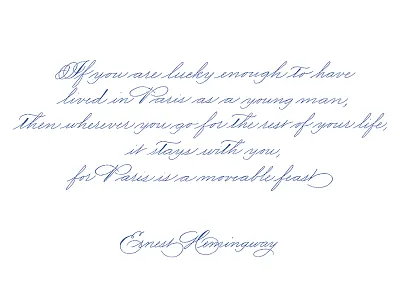 If you are lucky enough to have
lived in Paris as a young man,
then wherever you go for the rest of your life,
it stays with you,
for Paris is a moveable feast
Ernest Hemingway